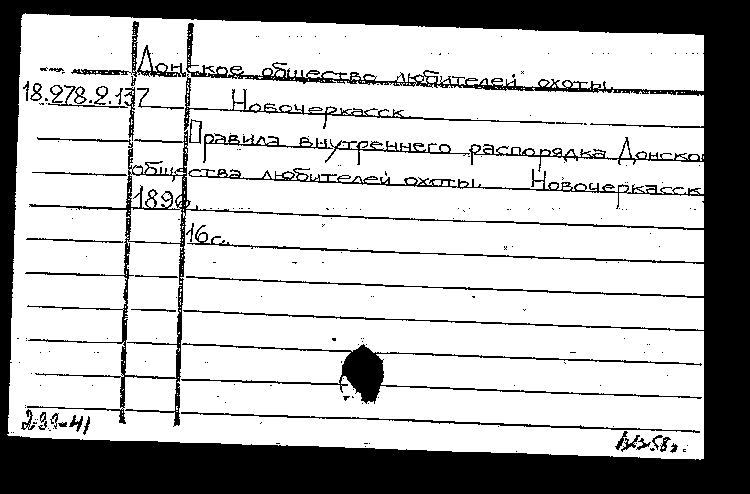 Донское общество любителей охоты.
18.278.2.137 Новочеркасск.
Правила внутреннего распорядка Донско
общества любителей охоты. Новочеркасск
1890.
16с.
299-41